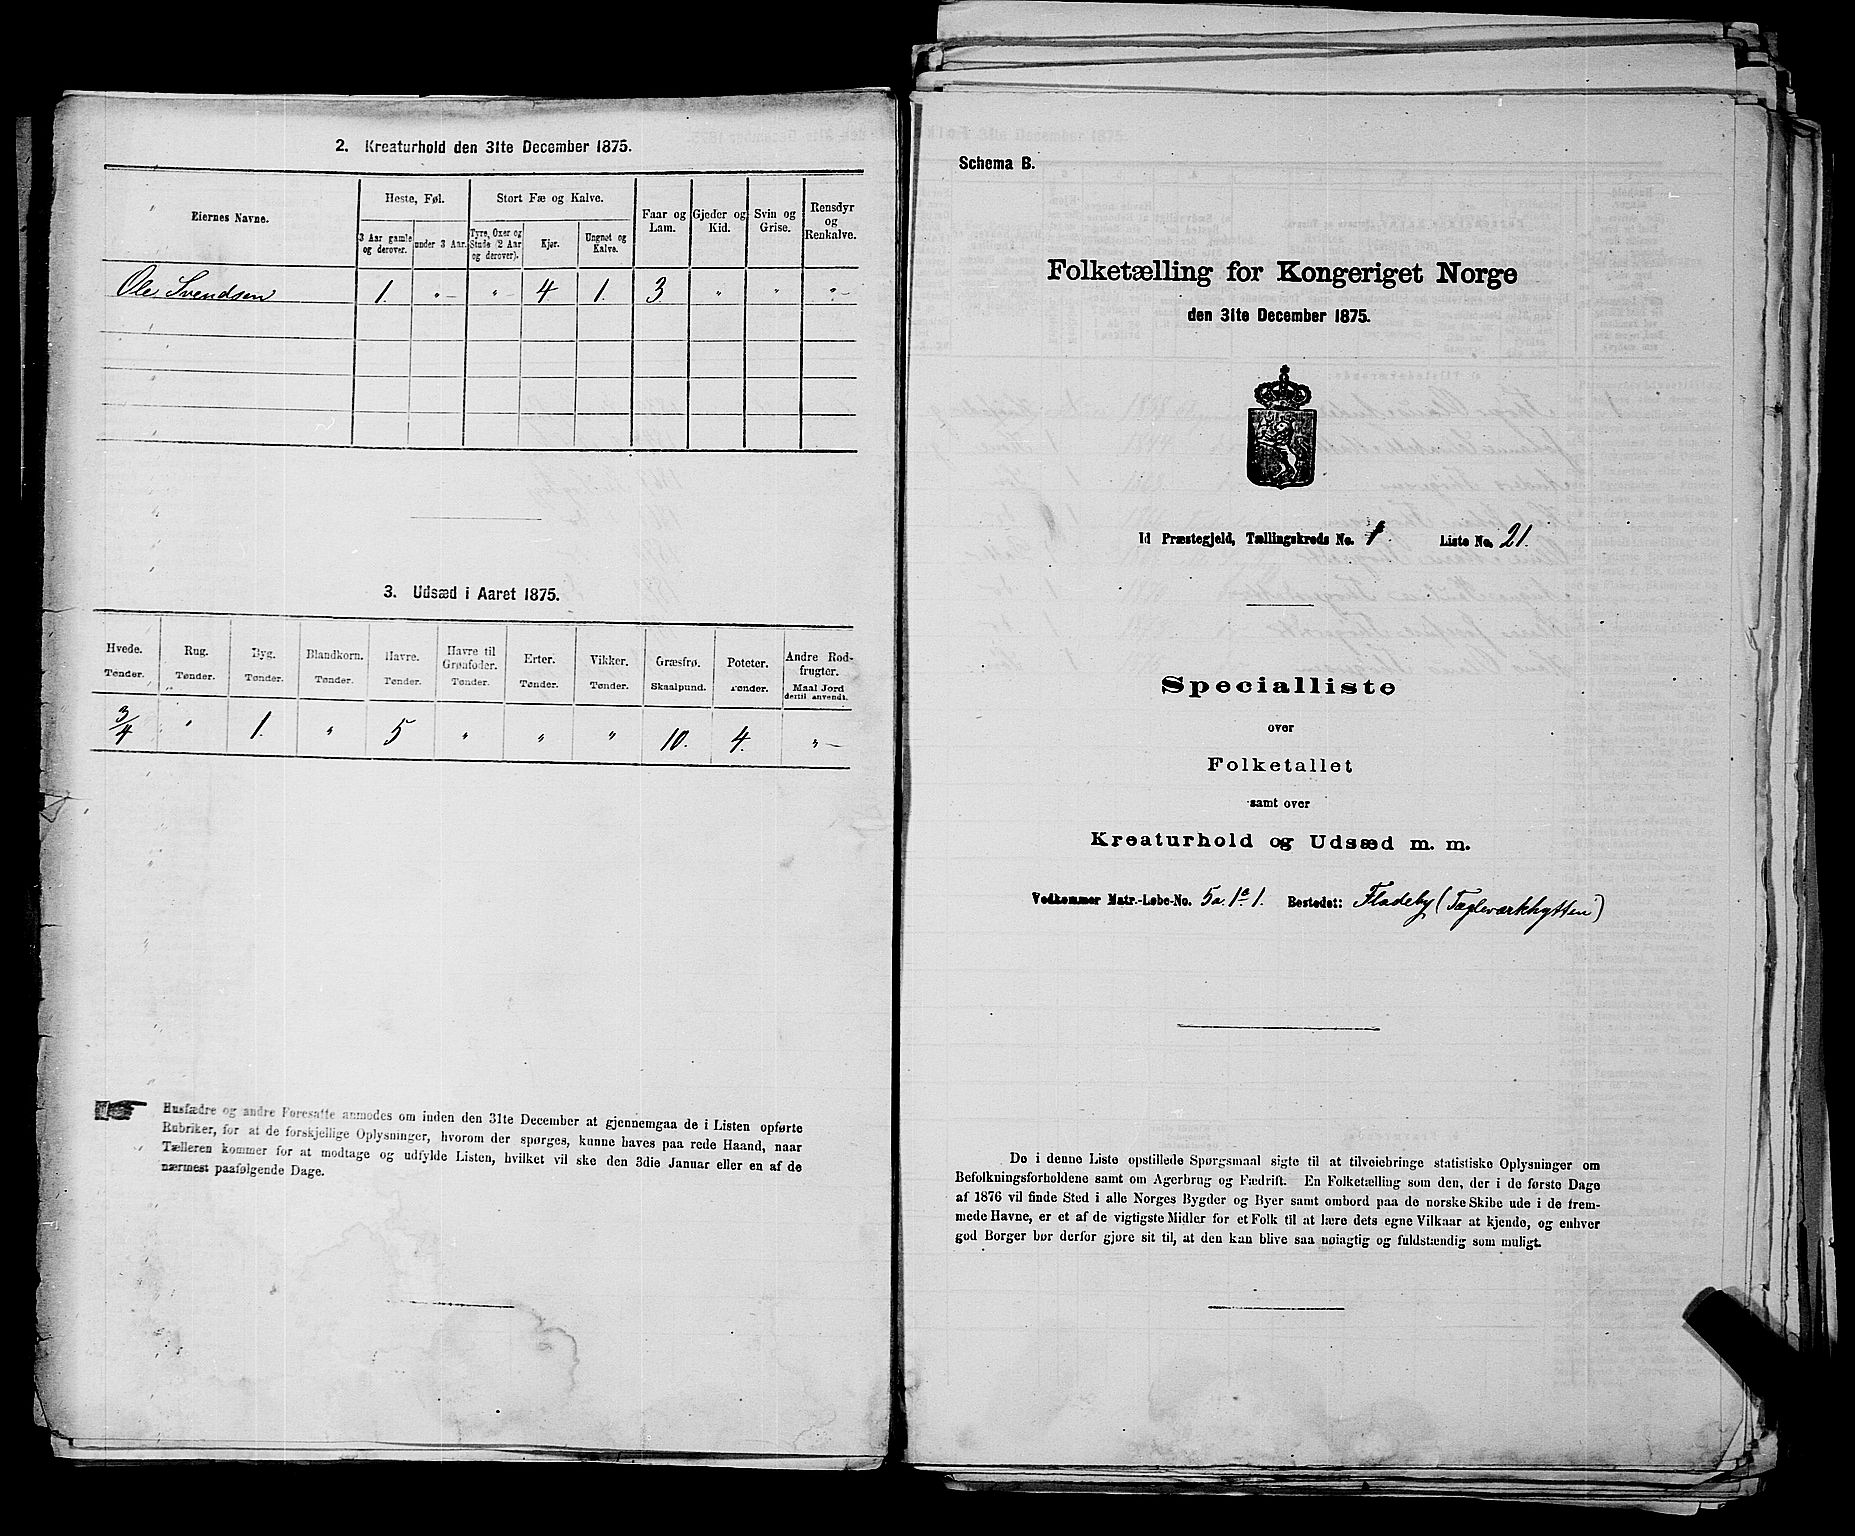 2. Kreaturhold den 31te December 1875.
Eiernes Navne.
Heste, Føl.
Stort Fæ og Kalve.
Faar og Lam.
Gjeder og Kid.
Svin og Grise.
Rensdyr og Renkalve.
3 Aar gamle og derover.
under 3 Aar.
Tyre, Oxer og Stude (2 Aar og derover).
Kjør.
Ungnøt og Kalve.
Ole Svendsen 1. " " 4 1. 3 " " "
3. Udsæd i Aaret 1875.
Hvede. Rug. Byg. Blandkorn. Havre. Havre til Grønfoder. Erter. Vikker. Græsfrø. Poteter. Andre Rodfrugter.
Tønder. Tønder. Tønder. Tønder. Tønder. Tønder. Tønder. Tønder. Skaalpund. Tønder. Maal Jord dertil anvendt.
3/4 " 1. " 5 " " " 10. 4. "
Husfædre og andre Foresatte anmodes om inden den 31te December at gjennemgaa de i Listen opførte
Rubriker, for at de forskjellige Oplysninger, hvorom der spørges, kunne haves paa rede Haand, naar
Tælleren kommer for at modtage og udfylde Listen, hvilket vil ske den 3die Januar eller en af de
nærmest paafølgende Dage.
Schema B.
Folketælling for Kongeriget Norge
den 31te December 1875.
Id Præstegjeld, Tællingskreds No. 1 Liste No. 21.
Specialliste
over
Folketallet
samt over
Kreaturhold og Udsæd m. m.
Vedkommer Matr.-Løbe-No. 5a. 1e 1. Bostedet: Fladeby (Tæglværkhytten)
De i denne Liste opstillede Spørgsmaal sigte til at tilveiebringe statistiske Oplysninger om
Befolkningsforholdene samt om Agerbrug og Fædrift. En Folketælling som den, der i de første Dage
af 1876 vil finde Sted i alle Norges Bygder og Byer samt ombord paa de norske Skibe ude i de frem-
mede Havne, er et af de vigtigste Midler for et Folk til at lære dets egne Vilkaar at kjende, og enhver
god Borger bør derfor gjøre sit til, at den kan blive saa nøiagtig og fuldstændig som muligt.